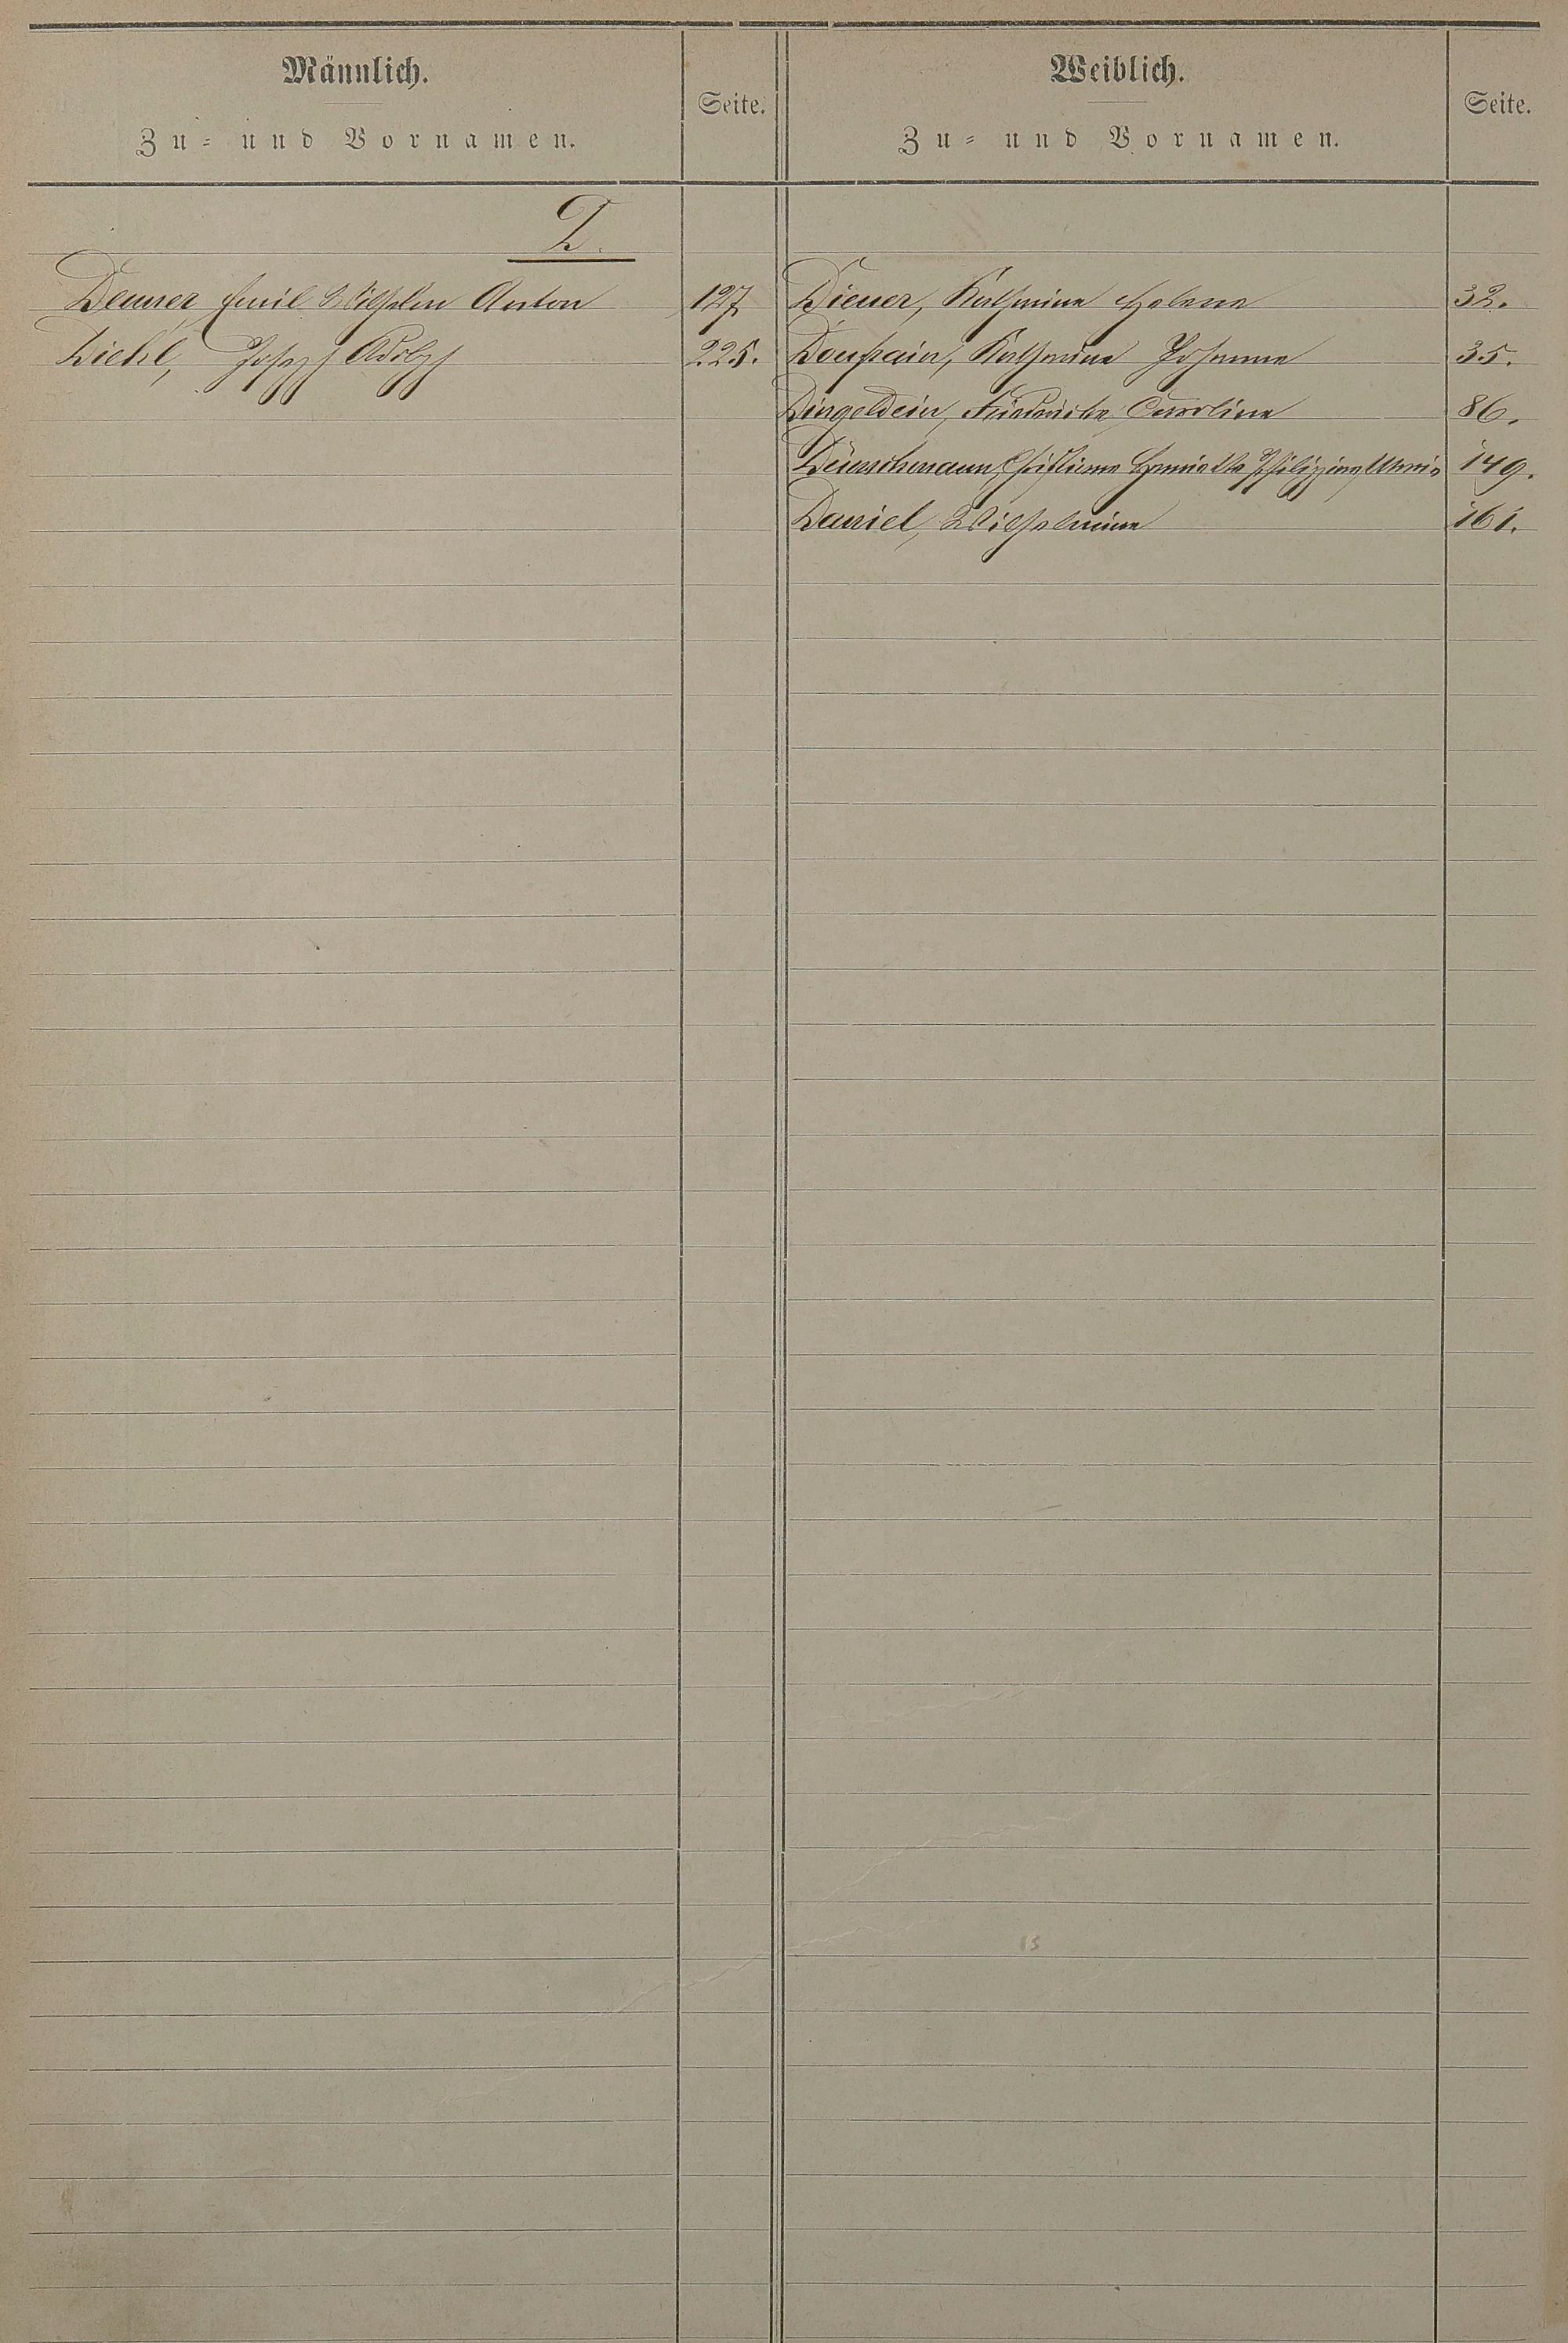 Männlich.
Zu- und Vornamen.
Seite.
Weiblich.
Zu- und Vornamen.
Seite.
D.
Deuser, Emil Wilhelm Anton 127
Diehl, Joseph Adolph 225.
Diener, Katharina Helene 32.
Katharina Johanna 35.
Dingeldein, Friederike Caroline 86.
Dünschmann, Christiane Henriette Philippine Marie 149.
Daniel, Wilhelmine 161.
15